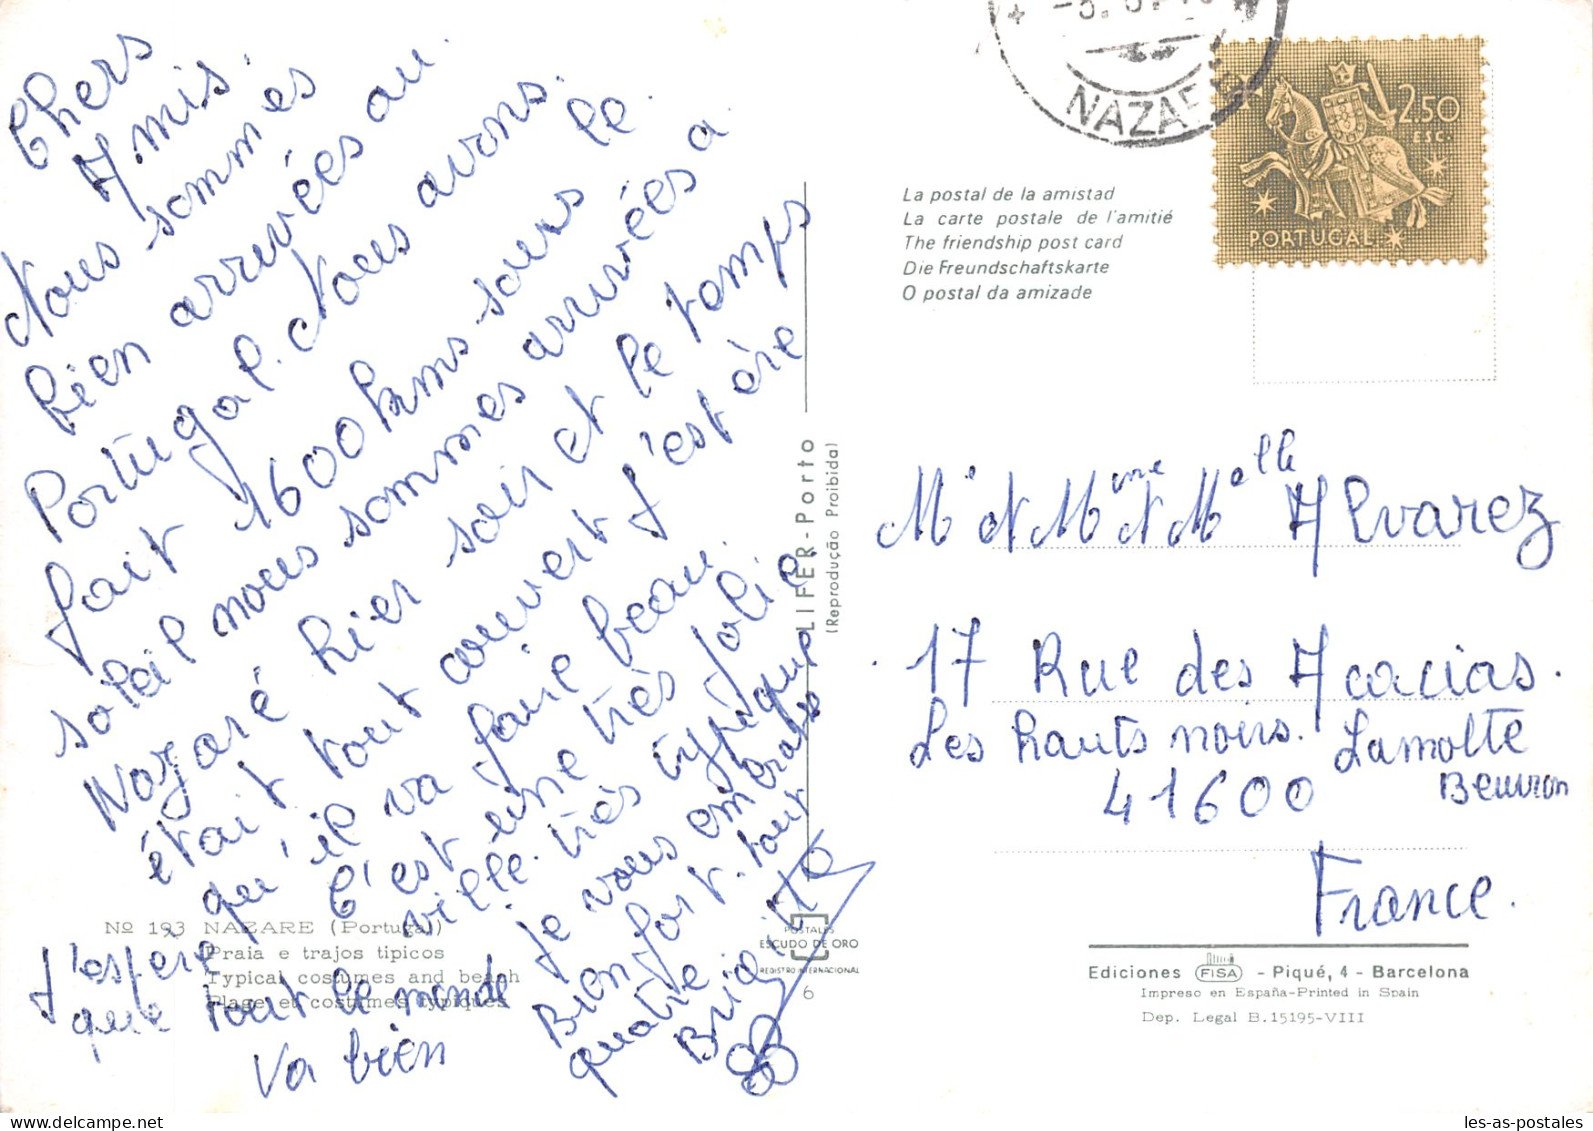 Chers
Amis.
Nous sommes
bien arrivées au
Portugal. Nous avons.
fait 1600 kms sous le
soleil nous sommes arrivées a
Nazaré hier soir et le temps
était tout couvert j'espère
qu'il va faire beau.
C'est une très jolie
ville. très typique
Je vous embrasse
Bien fort. tout
quatre
Brigitte
J'espère
que tout le monde
va bien
No 193 NAZARE (Portugal)
Praia e trajos tipicos
Typical costumes and beach
Plage et costumes typiques
LIFER - Porto
(Reprodução Proibida)
POSTALES
ESCUDO DE ORO
REGISTRO INTERNACIONAL
6
NAZARE
2.50
ESC.
PORTUGAL
La postal de la amistad
La carte postale de l'amitié
The friendship post card
Die Freundschaftskarte
O postal da amizade
Mr et Mme et Melle Alvarez
17 Rue des Acacias.
Les hauts noirs. Lamotte
41600 Beuvron
France.
Ediciones FISA - Piqué, 4 - Barcelona
Impreso en España-Printed in Spain
Dep. Legal B.15195-VIII
les-as-postales